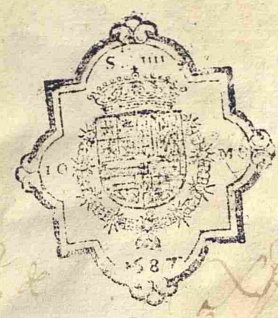 S. IIII
10 MS
1687